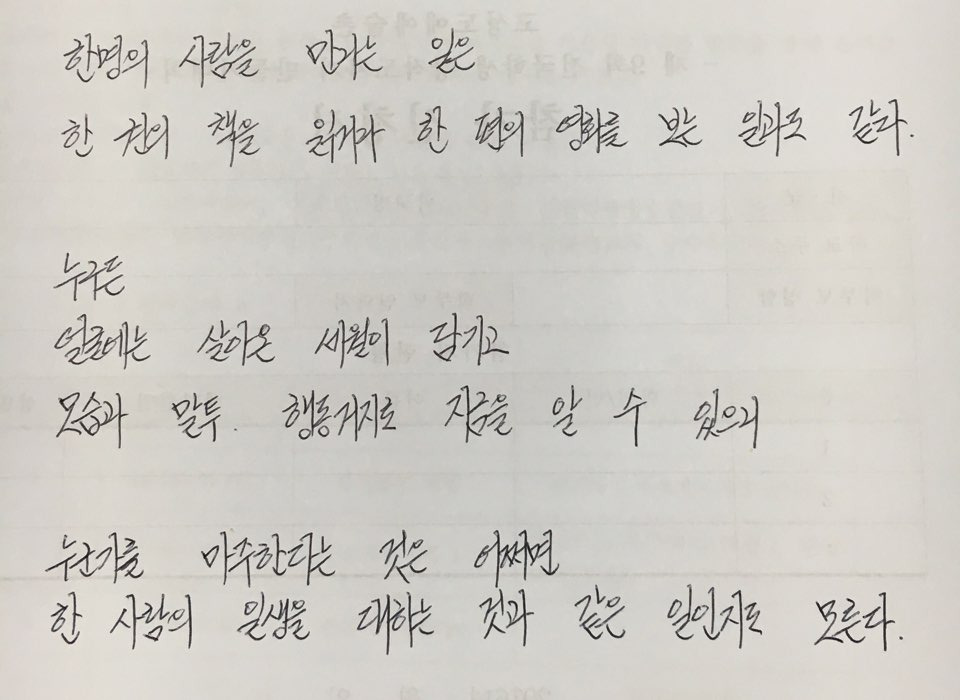 한명의 사람을 만나는 일은
한 권의 책을 읽거나 한 편의 영화를 보는 일과도 같다.
누구든
얼굴에는 살아온 세월이 담기고
모습과 말투. 행동거지로 지금을 알 수 있으니
누군가를 마주한다는 것은 어쩌면
한 사람의 일생을 대하는 것과 같은 일인지도 모른다.